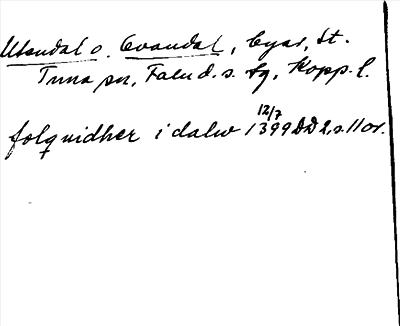 Utendal o. Ovandal, byar, St.
Tuna sn, Falu d. s. fg, Kopp. l.
12/7
folquidher i dalw 1399 DD 2, s. 110 r.